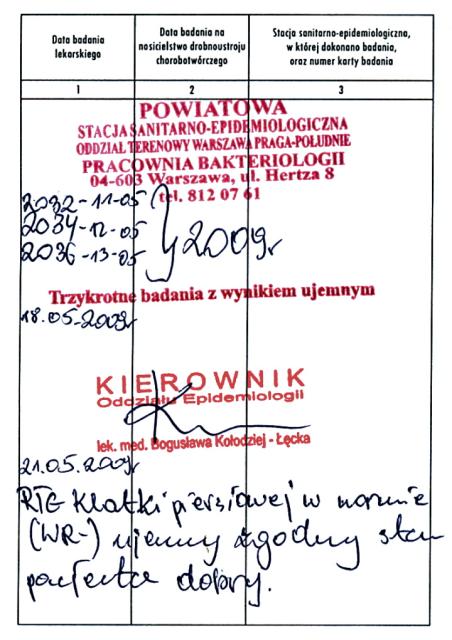 Data badania
lekarskiego
Data badania na
nosicielstwo drobnoustroju
chorobotwórczego
Stacja sanitarno-epidemiologiczna,
w której dokonano badania,
oraz numer karty badania
1 2 3
POWIATOWA
STACJA SANITARNO-EPIDEMIOLOGICZNA
ODDZIAŁ TERENOWY WARSZAWA PRAGA-POŁUDNIE
PRACOWNIA BAKTERIOLOGII
04-603 Warszawa, ul. Hertza 8
tel. 812 07 61
2032-11-05
2034-12-05
2036-13-05
2009r
Trzykrotne badania z wynikiem ujemnym
18.05.2009r
KIEROWNIK
Oddziału Epidemiologii
lek. med. Bogusława Kołodziej - Łęcka
21.05.2009r
RTG Klatki piersiowej w normie
(WR-) ujemny zgodny stan
pacjenta dobry.